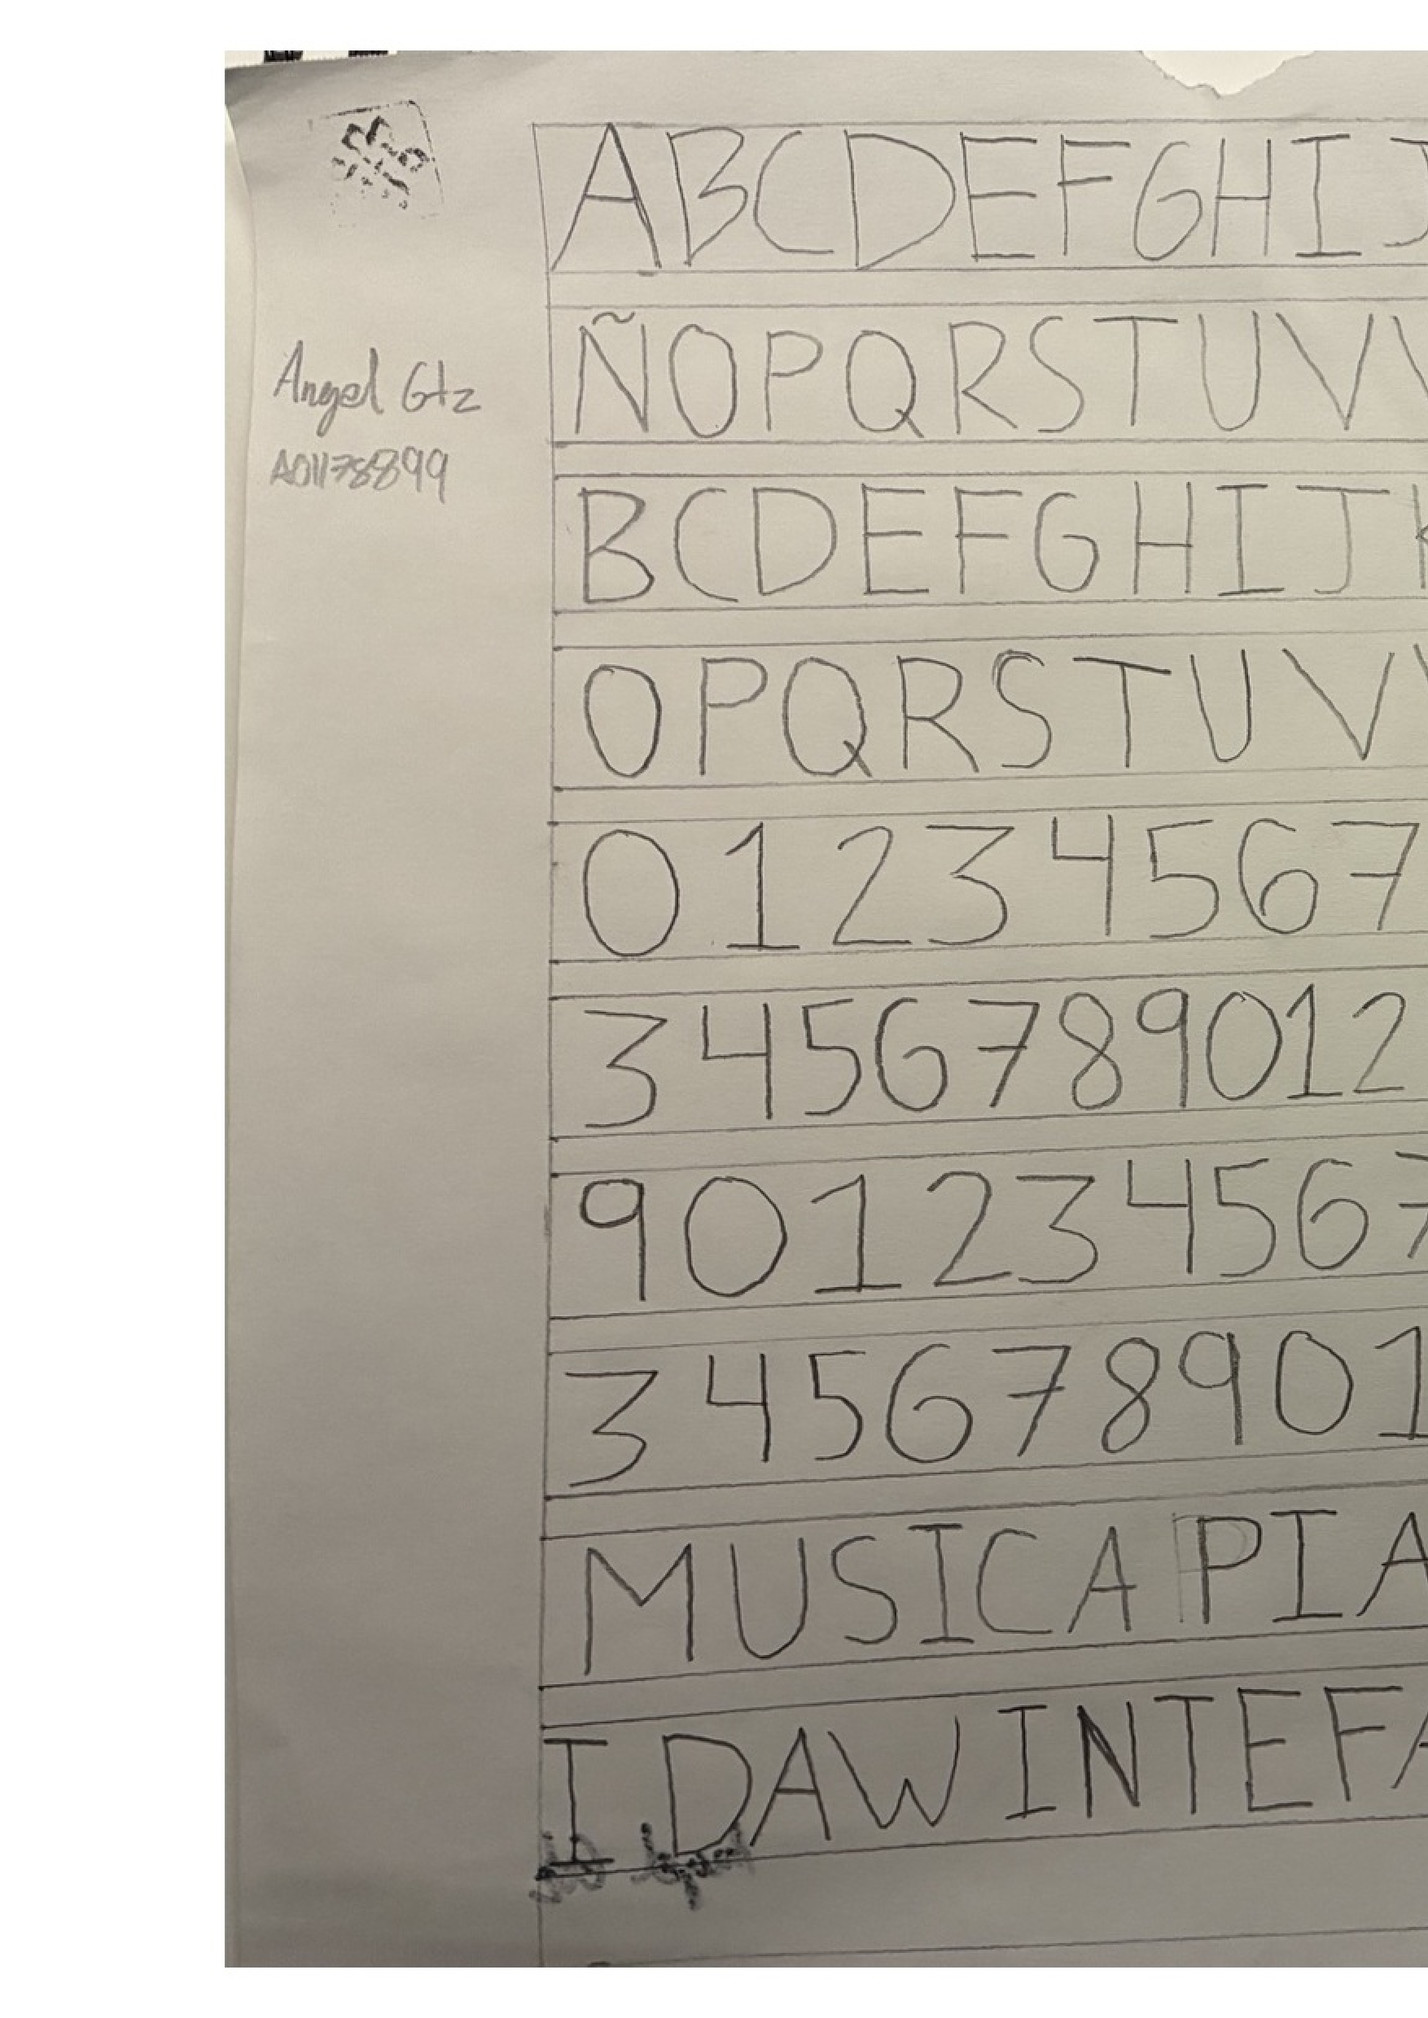 Angel Gtz
A01178899
ABCDEFGHIJ
ÑOPQRSTUV
BCDEFGHIJK
OPQRSTUV
01234567
3456789012
901234567
345678901
MUSICA PIA
I.DAW INTEFA